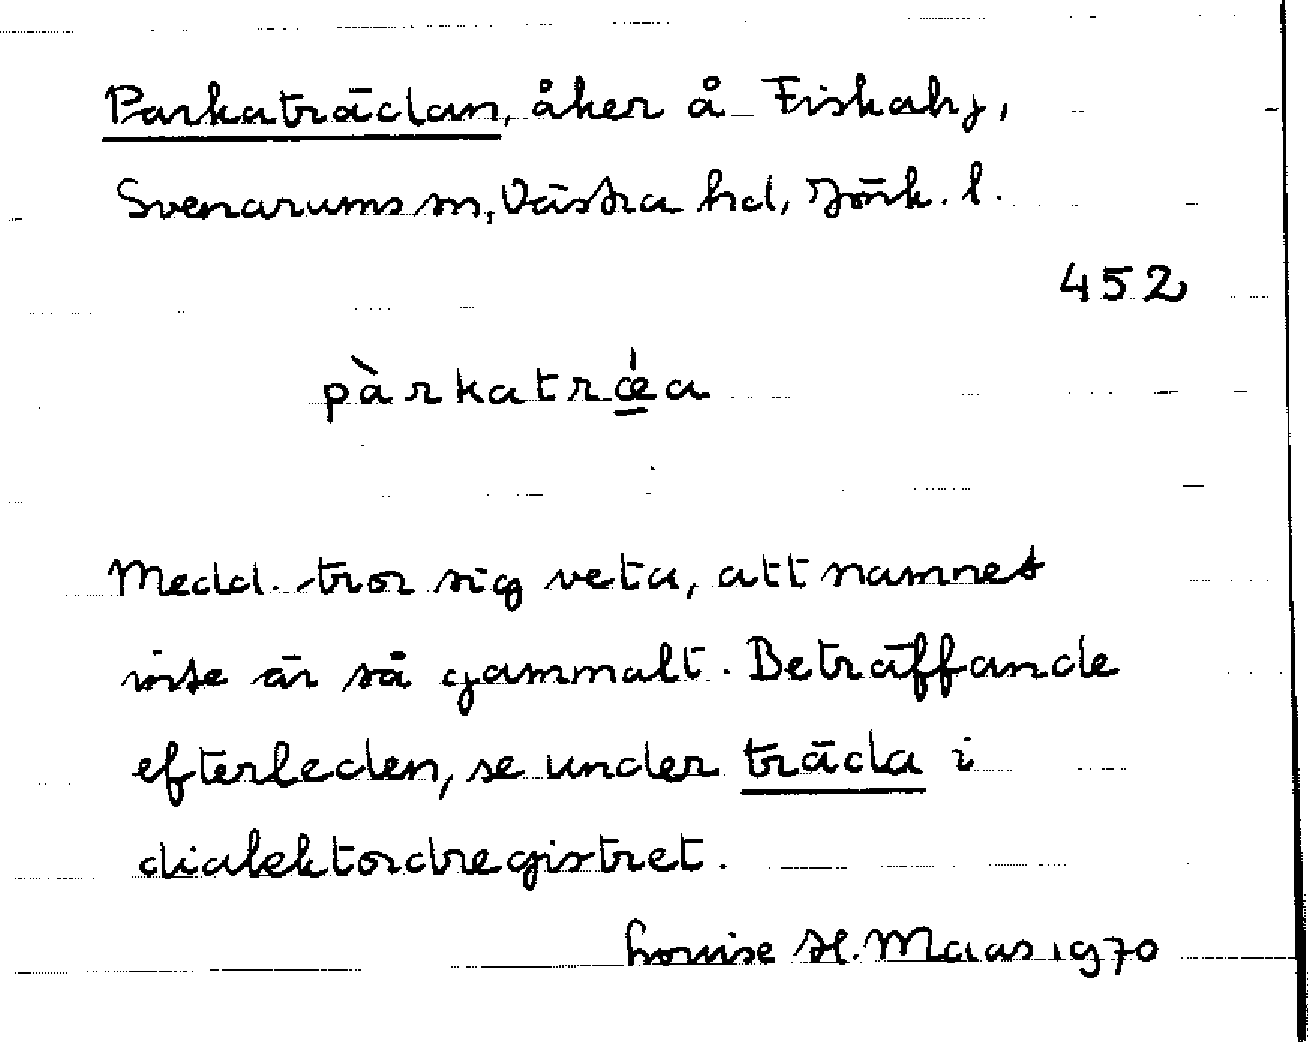 Parkaträdan, åker å Fiskaby,
Svenarums sn, Västra hd, Jönk. l.
452
pàrkatrǽa
Medd. tror sig veta, att namnet
inte är så gammalt. Beträffande
efterleden, se under träda i
dialektordregistret.
Louise H. Maas 1970